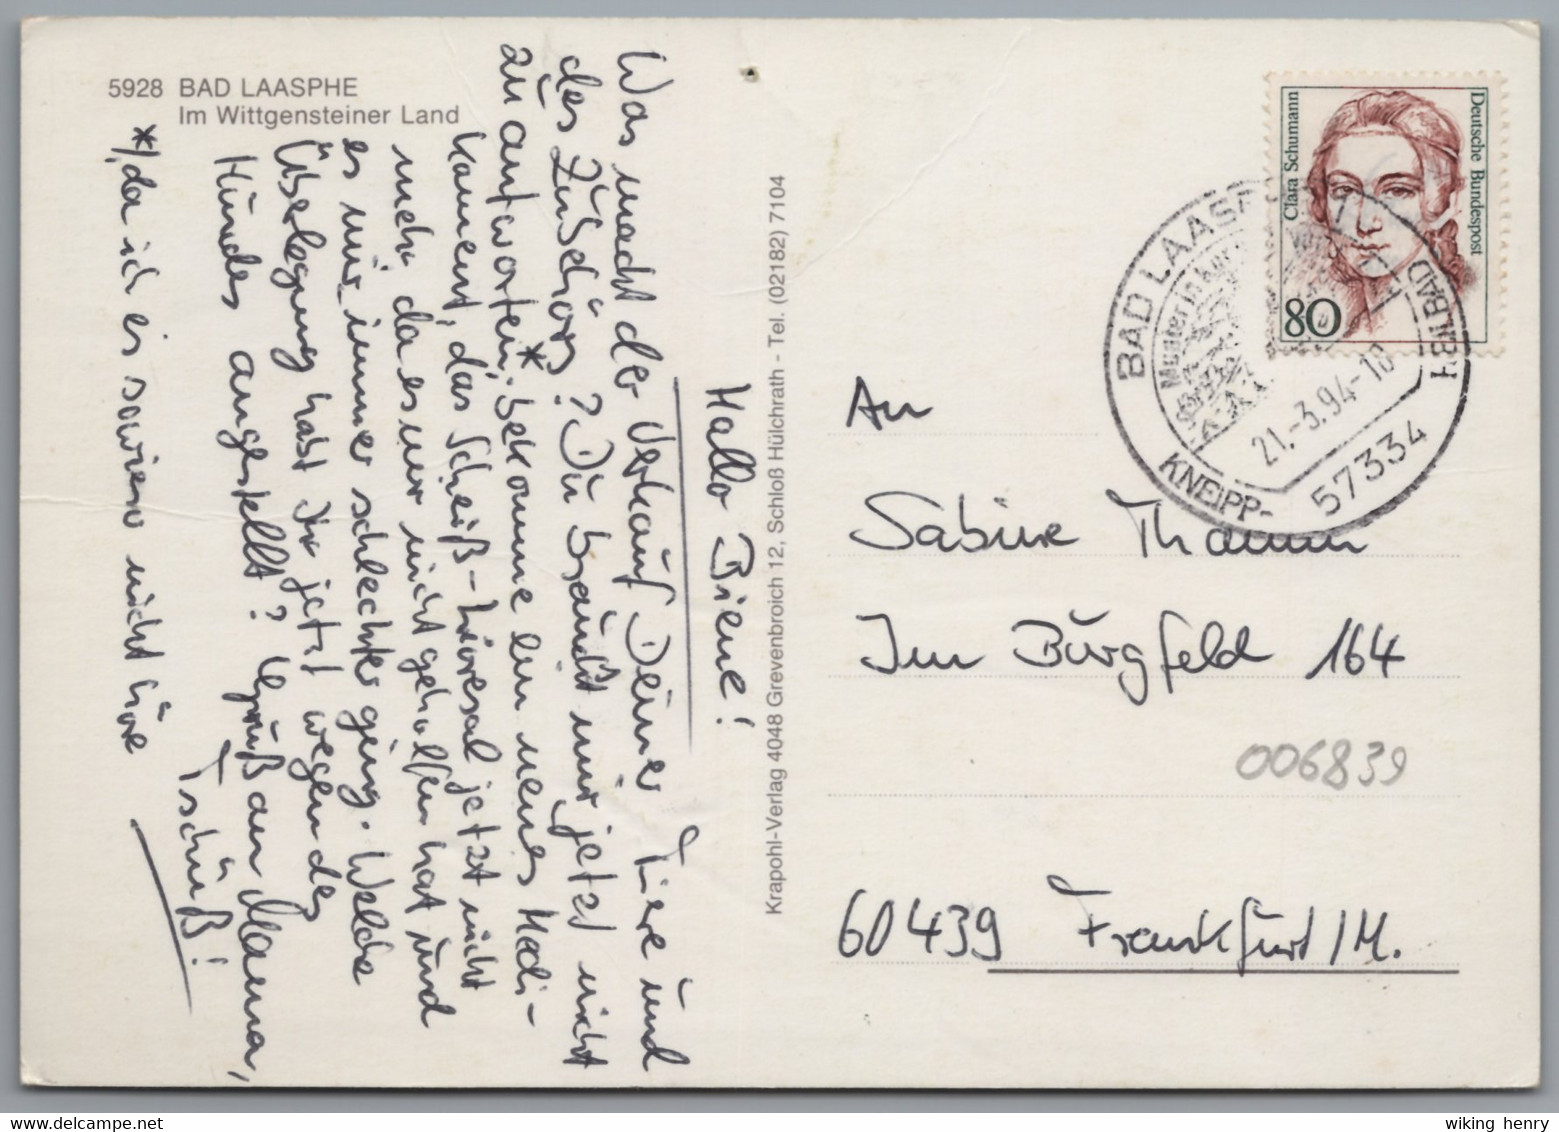 5928 BAD LAASPHE
Im Wittgensteiner Land
Hallo Biene!
Was macht der Verkauf Deiner Tiere und
des Zubehörs? Du brauchst mir jetzt nicht
zu antworten,* bekomme ein neues Medi-
kament, das Scheiß-Lioresal jetzt nicht
mehr, da es mir nicht geholfen hat und
es mir immer schlechter ging. Welche
Überlegung habt Ihr jetzt wegen des
Hundes angestellt? Gruß an Mama,
Tschüß!
*/da ich es sowieso nicht höre
Krapohl-Verlag 4048 Grevenbroich 12, Schloß Hülchrath - Tel. (02182) 7104
Clara Schumann
Deutsche Bundespost
80
BAD LAASPHE
KNEIPP-HEILBAD
21.-3.94-18
57334
An
Sabine Thamm
Im Burgfeld 164
006839
60439 Frankfurt/M.
wiking henry